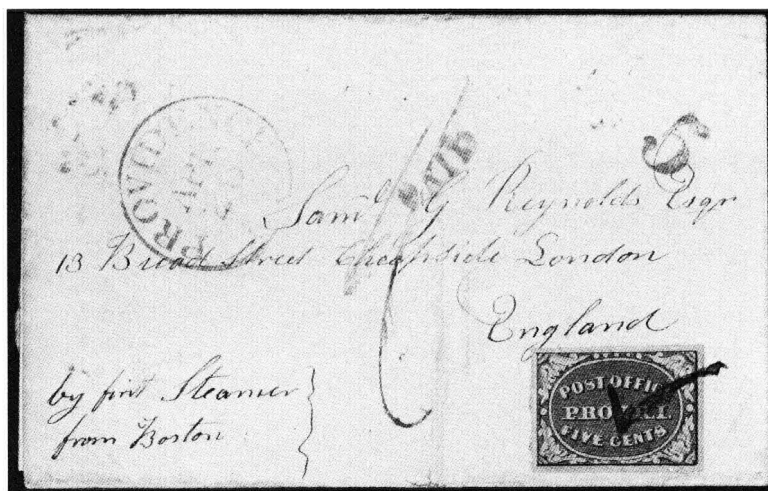 PROVIDENCE
APR
PAID
5
Saml G Reynolds Esqr
13 Bread Street Cheapside London
England
by first Steamer
from Boston
POST OFFICE
PROV. R.I.
FIVE CENTS